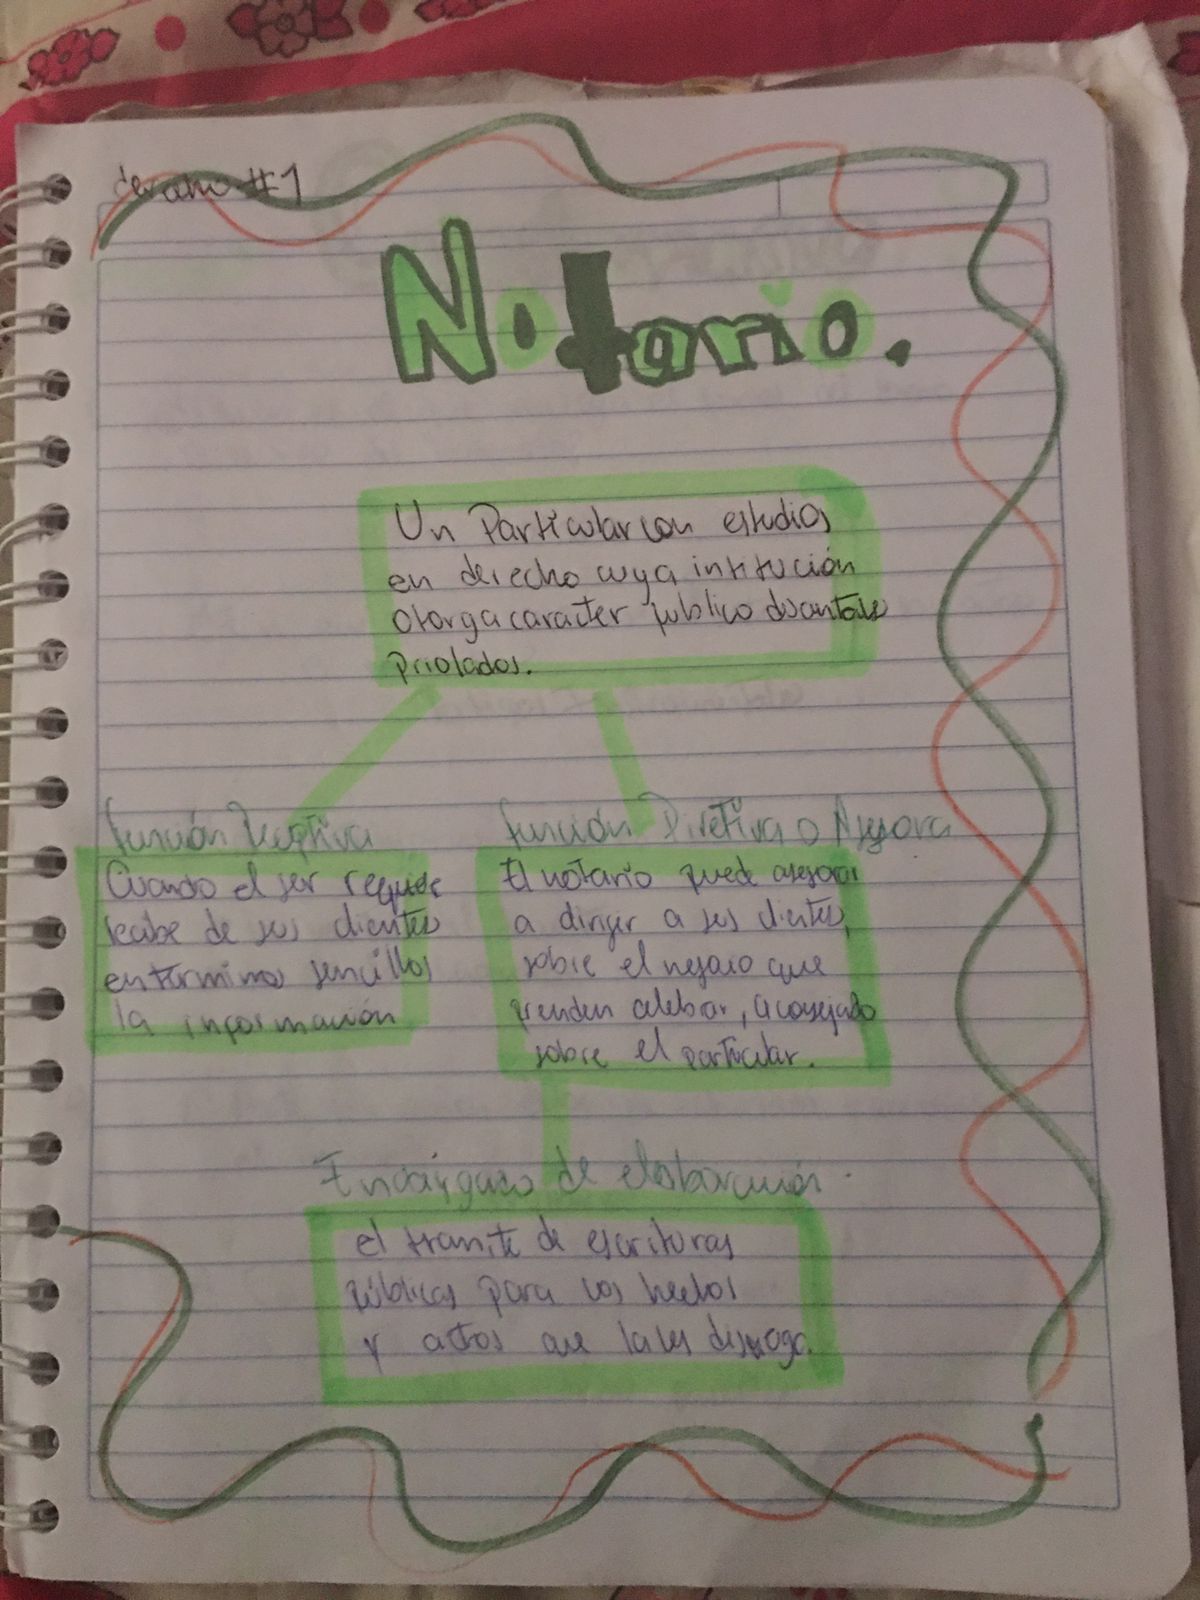 #1
Notario.
Un Particular con estudios
en derecho cuya intitución
otorga caracter publico
Función Receptiva
Cuando el ser requiere
recibe de sus clientes
en terminos sencillos
la información
función Diretiva o Asesora
El notario puede asesorar
a dirigir a sus clientes,
sobre el negocio que
prenden celebrar, aconsejado
sobre el particular.
de elaboración.
el tramite de escrituras
públicas para los hechos
y actos que